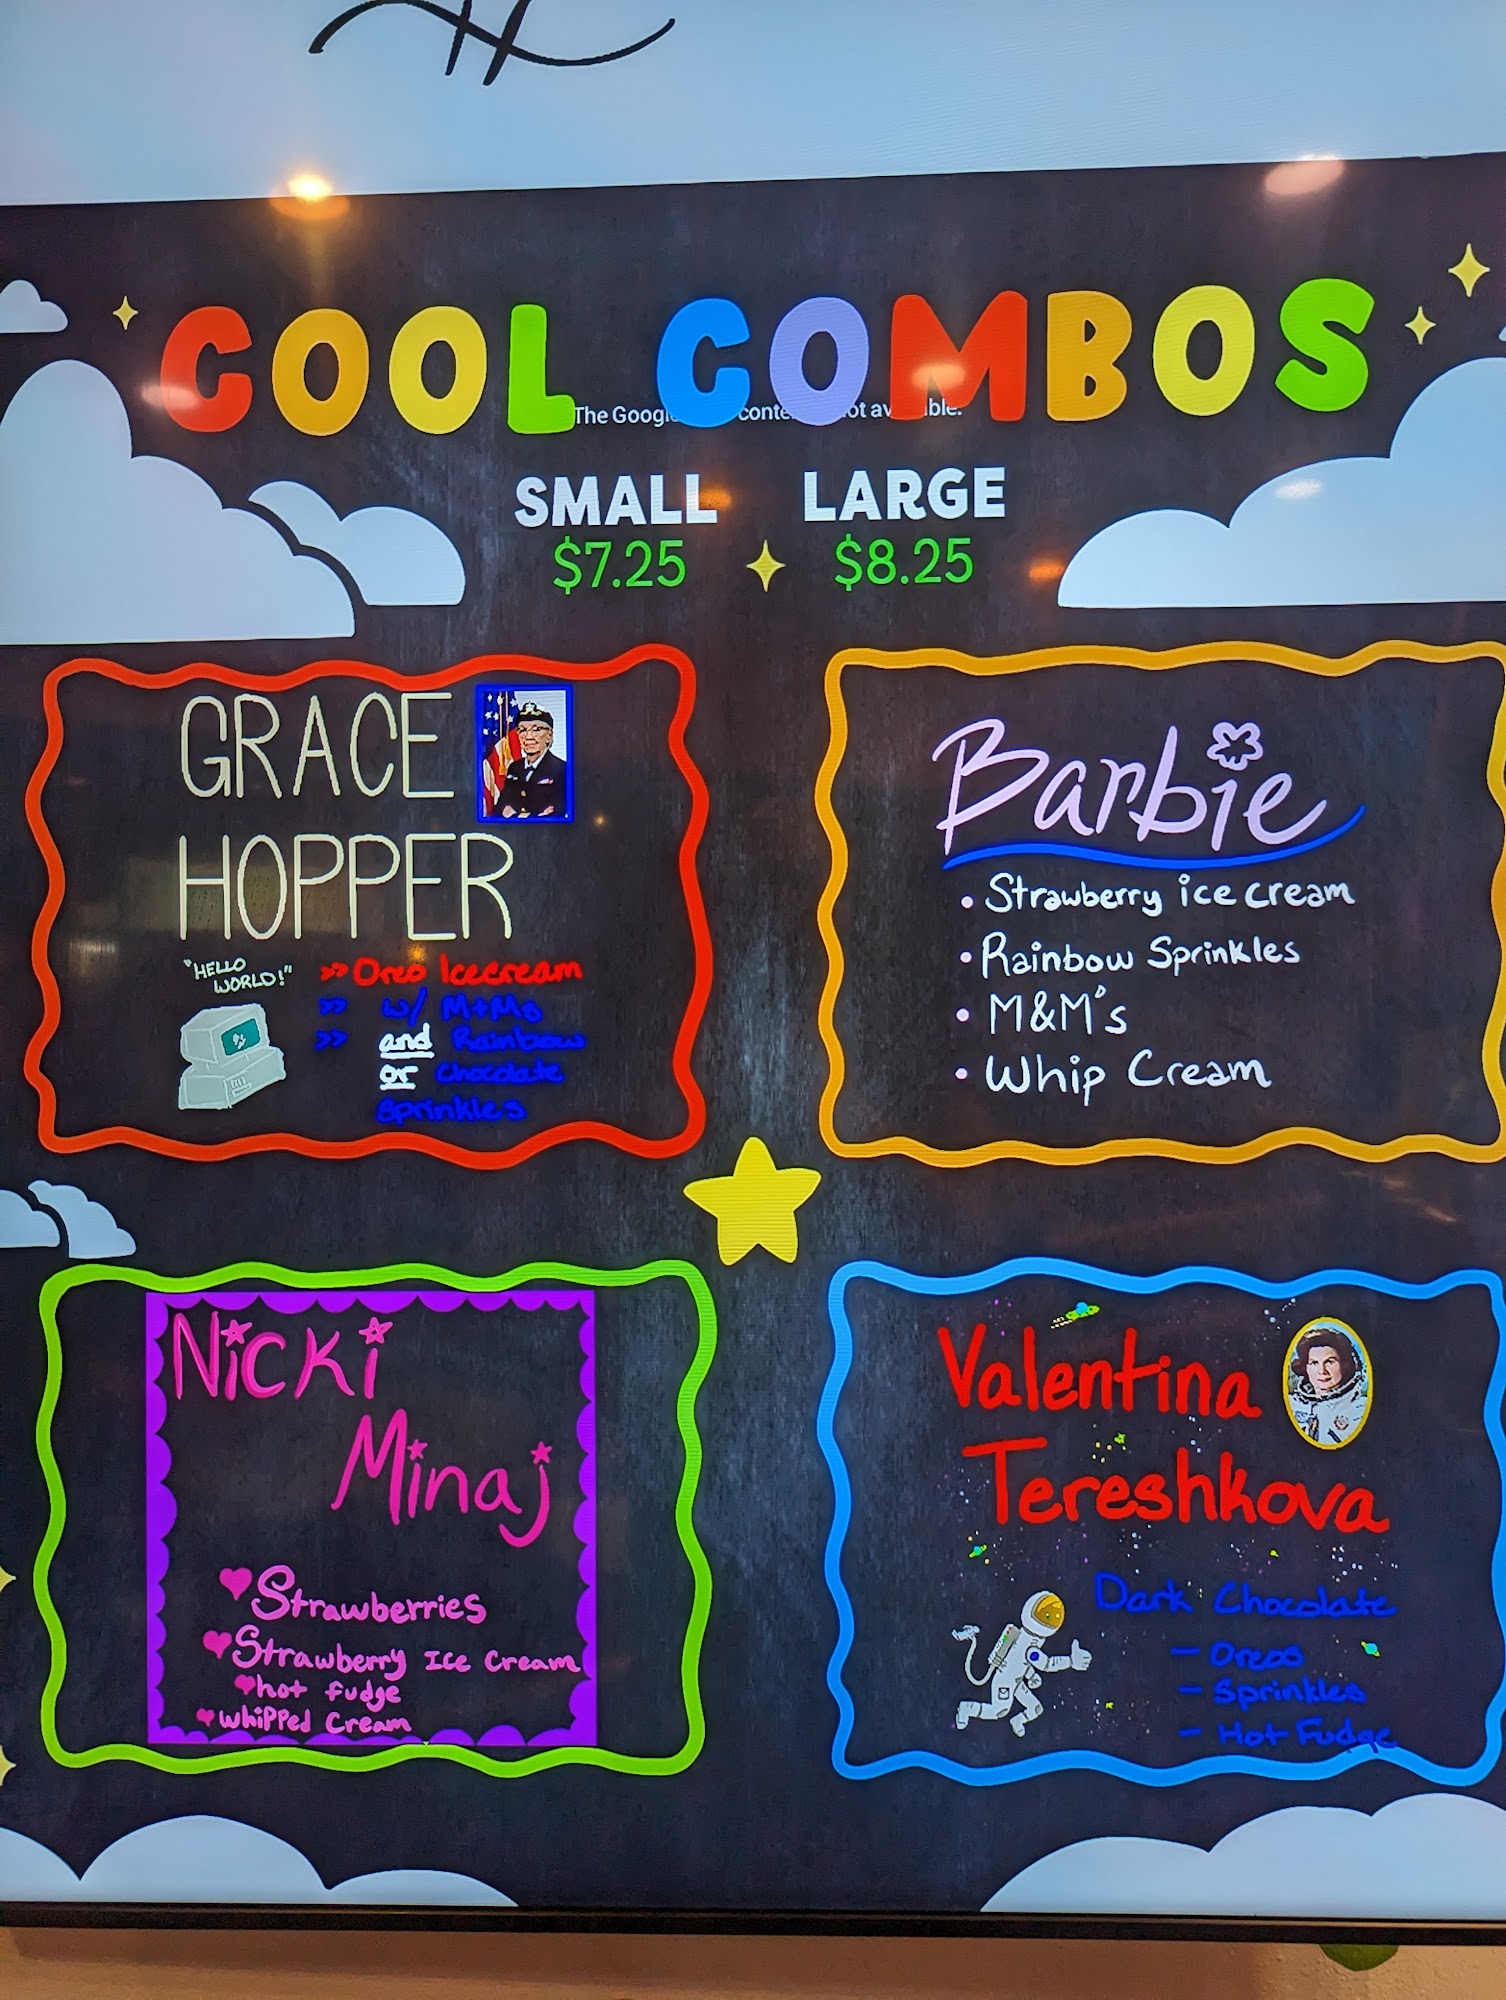 COOL COMBOS
The Google
SMALL LARGE
$7.25 $8.25
GRACE
HOPPER
"HELLO
WORLD!"
>> Oreo Icecream
>> w/ M+Ms
>> and Rainbow
or Chocolate
Sprinkles
Barbie
• Strawberry ice cream
• Rainbow Sprinkles
• M&M's
• Whip Cream
Nicki
Minaj
Strawberries
Strawberry Ice Cream
hot fudge
whipped Cream
Valentina
Tereshkova
Dark Chocolate
- Oreos
- Sprinkles
- Hot Fudge